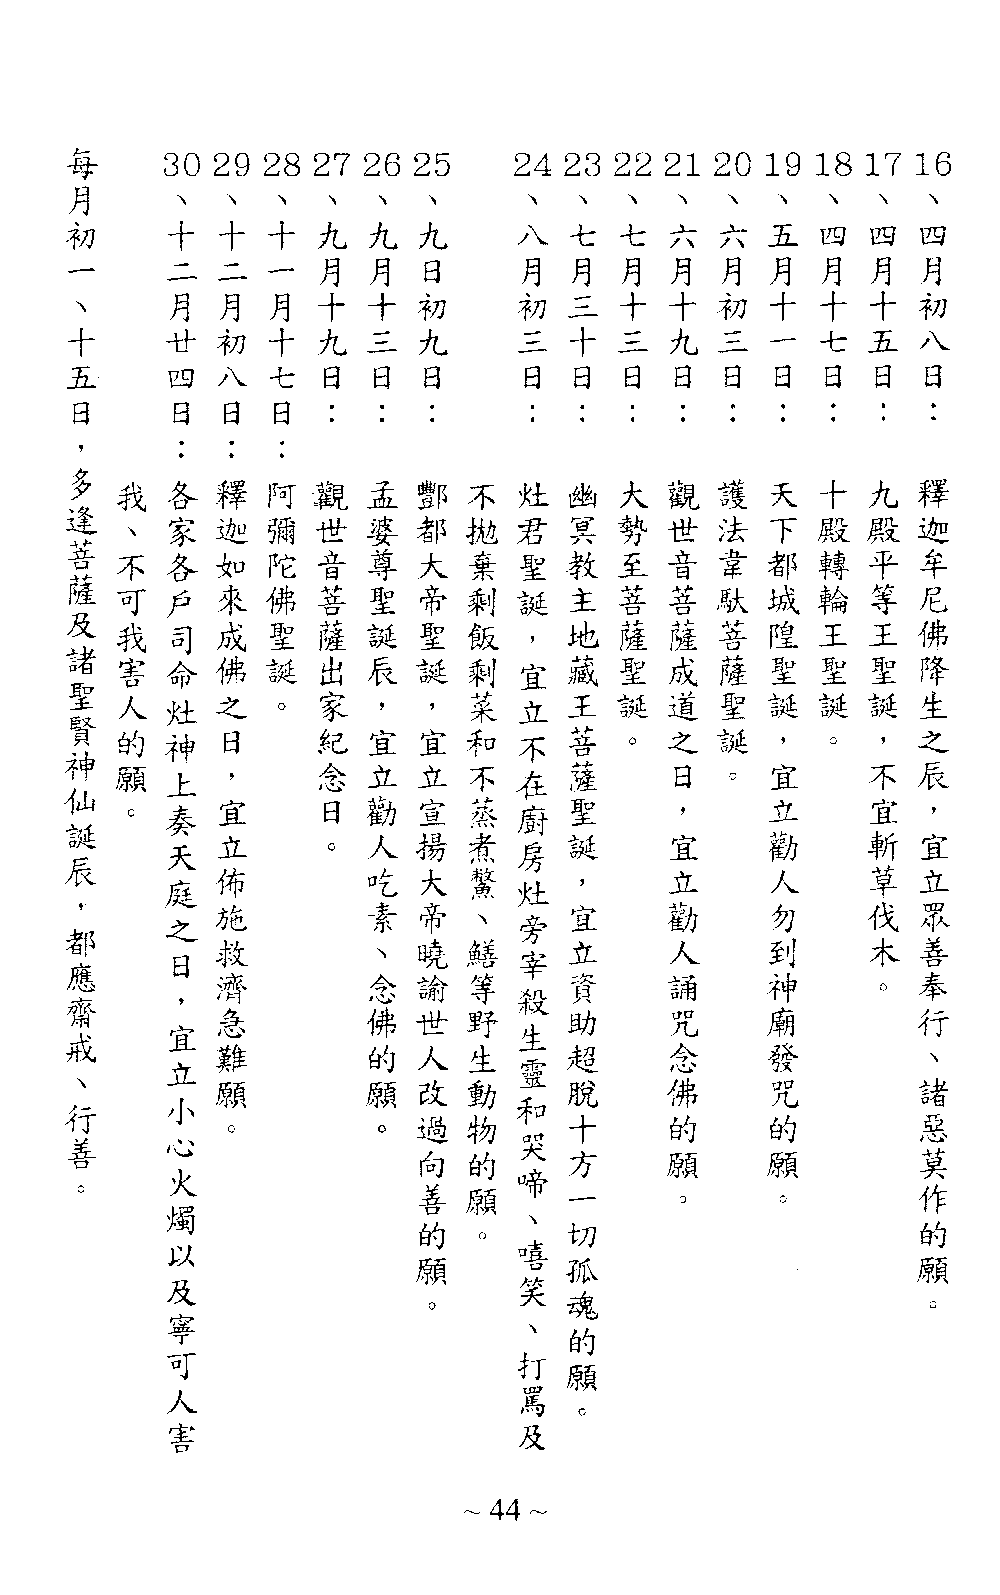 16、四月初八日：釋迦牟尼佛降生之辰，宜立眾善奉行、諸惡莫作的願。
17、四月十五日：九殿平等王聖誕，不宜斬草伐木。
18、四月十七日：十殿轉輪王聖誕。
19、五月十一日：天下都城隍聖誕，宜立勸人勿到神廟發咒的願。
20、六月初三日：護法韋馱菩薩聖誕。
21、六月十九日：觀世音菩薩成道之日，宜立勸人誦咒念佛的願。
22、七月十三日：大勢至菩薩聖誕。
23、七月三十日：幽冥教主地藏王菩薩聖誕，宜立資助超脫十方一切孤魂的願。
24、八月初三日：灶君聖誕，宜立不在廚房灶旁宰殺生靈和哭啼、嘻笑、打罵及
不拋棄剩飯剩菜和不蒸煮鱉、鱔等野生動物的願。
25、九日初九日：酆都大帝聖誕，宜立宣揚大帝曉諭世人改過向善的願。
26、九月十三日：孟婆尊聖誕辰，宜立勸人吃素、念佛的願。
27、九月十九日：觀世音菩薩出家紀念日。
28、十一月十七日：阿彌陀佛聖誕。
29、十二月初八日：釋迦如來成佛之日，宜立佈施救濟急難願。
30、十二月廿四日：各家各戶司命灶神上奏天庭之日，宜立小心火燭以及寧可人害
我、不可我害人的願。
每月初一、十五日，多逢菩薩及諸聖賢神仙誕辰，都應齋戒、行善。
~44~